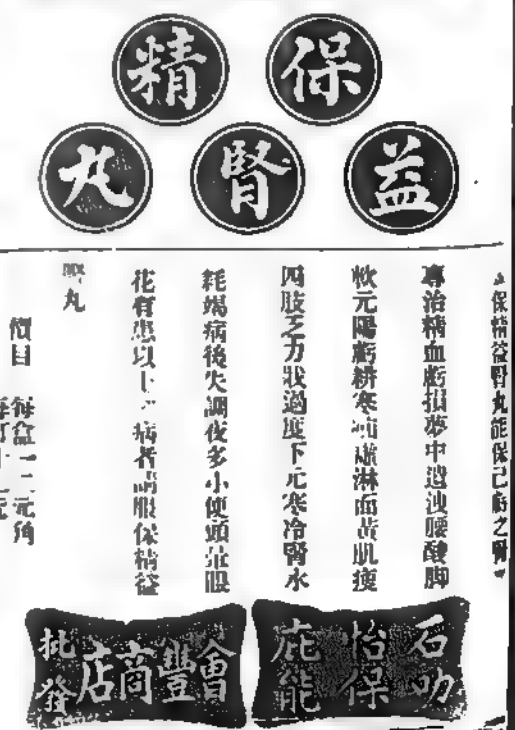 保精
益腎丸
保精益腎丸能保已虧之腎
專治精血虧損夢中遺洩腰酸脚
軟元陽虧耕寒淋面黃肌瘦
四肢乏力戕過度下元寒冷腎水
耗竭病後失調夜多小便頭暈眼
花有患以上病者請服保精益
腎丸
價目
每盒一二元角
每打十元
石叻
怡保
庇能
會豐商店
批發